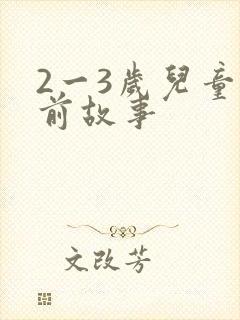 2一3歲兒童
前故事
文改芳